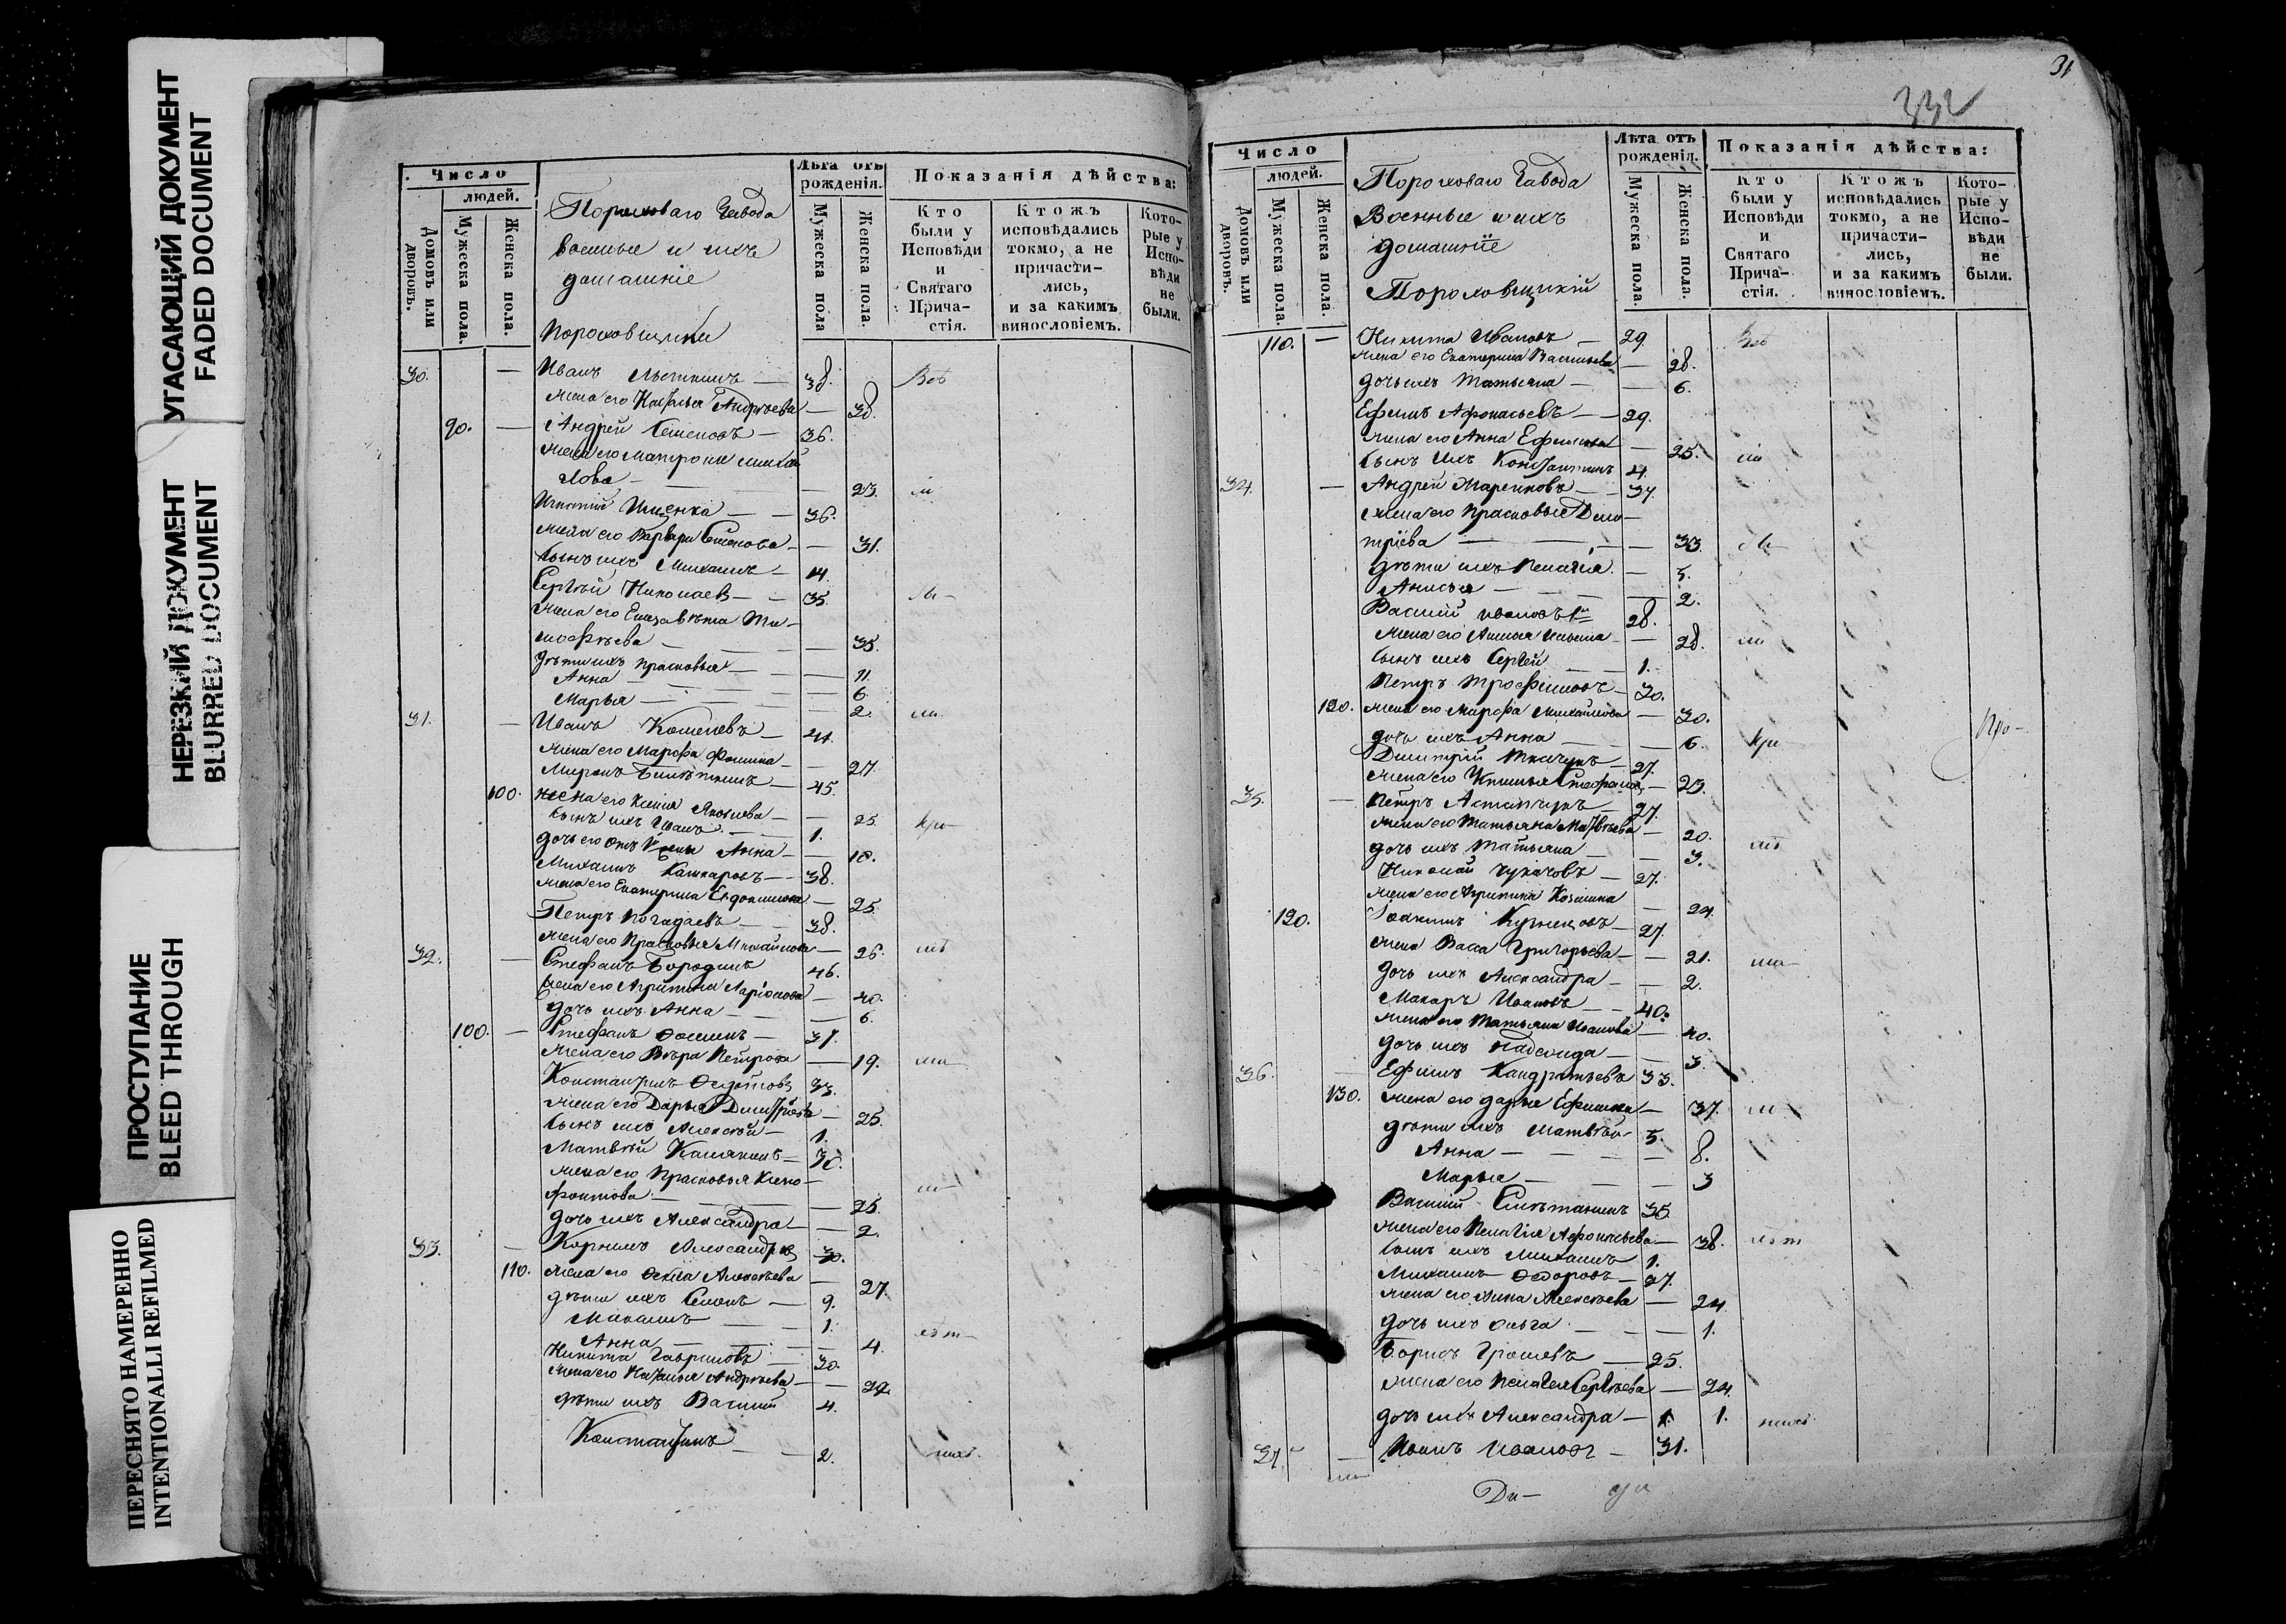 УГАСАЮЩИЙ ДОКУМЕНТ
FADED DOCUMENT
НЕРЕЗКИЙ ДОКУМЕНТ
BLURRED DOCUMENT
ПРОСТУПАНИЕ
BLEED THROUGH
ПЕРЕСНЯТО НАМЕРЕННО
INTENTIONALLI REFILMED
Число
людей.
Домовъ или дворовъ.
Мужеска пола.
Женска пола.
Пороховаго Завода
военные и ихъ
домашніе
Пороховщики
Лѣта отъ рожденія.
Мужеска пола
Женска пола.
Показанія дѣйства:
Кто были у Исповѣди и Святаго Прича-стія.
Ктожъ исповѣдались токмо, а не причасти-лись, и за какимъ винословіемъ.
Кото-рые у Испо-вѣди не были.
30. — Иванъ — 38. Всѣ
жена его Наталья Андрѣева — 38.
90. — Андрей Семеновъ — 36.
жена его Матрона Михай
лова — — 23.
Игнатій Ищенка — 36.
жена его Варвара Семенова — — 31.
сынъ ихъ Михаилъ — 14.
Сергѣй Николаевъ — 35.
жена его Елизавѣта Ти-
мофѣева — — 35.
дѣти ихъ Прасковья — — 11.
Анна — — 6
Марья — — 2.
31. — Иванъ Кошелевъ — 41.
жена его Марѳа Фомина — — 27.
Миронъ — 45.
100. жена его Ксенія Яковлева — — 25.
сынъ ихъ Иванъ — 1.
дочь его отъ Анна — — 10.
Михаилъ Кашкаровъ — 38.
жена его Екатерина Евдокимова — 25.
Петръ Погадаевъ — 38.
жена его Прасковья Михайлова — 26.
32. — Стефанъ Бородинъ 46.
жена его Агрипина Ларіонова — 40.
дочь ихъ Анна — — 6.
100. — Стефанъ Ѳоминъ — 31.
жена его Вѣра Петрова — 19.
Константинъ Ѳедотовъ 33.
жена его Дарья Дмитріева — 25.
сынъ ихъ Алексѣй — 1.
Матвѣй — 30.
жена его Прасковья Ксено-
фонтова — — 25.
дочь ихъ Александра — — 2.
33. — Корнилъ Александровъ 30.
110. жена его Алексѣева — 27.
дѣти ихъ Семенъ — 9.
— 1.
Анна — — 4.
Никита Гавриловъ — 30.
жена его Наталья Андрѣева — — 29.
дѣти ихъ Василій 4.
Константинъ — 2.
31
332
Число
людей.
Домовъ или дворовъ.
Мужеска пола.
Женска пола.
Пороховаго Завода
Военные и ихъ
домашніе
Пороховщикій
Лѣта отъ рожденія.
Мужеска пола.
Женска пола.
Показанія дѣйства:
Кто были у Исповѣди и Святаго Прича-стія.
Ктожъ исповѣдались токмо, а не причасти-лись, и за какимъ винословіемъ.
Кото-рые у Испо-вѣди не были.
110. — Никита Ивановъ — 29. Всѣ
жена его Екатерина Васильева — 28.
дочь ихъ Татьяна — — 6.
Ефимъ Афонасьевъ — 29.
жена его Анна Ефимова — 25.
сынъ ихъ Константинъ 4.
34. — Андрей Марейновъ — 37.
жена его Прасковья Дми-
тріева — — 33.
дѣти ихъ Пелагія — 5.
Анисья — — 2.
Василій Ивановъ 1й 28.
жена его — 28.
сынъ ихъ Сергѣй — 1.
Петръ Трофимовъ — 30.
120. жена его Марѳа Михайлова — 30.
дочь ихъ Анна — — 6.
Дмитрій Ткачукъ — 27.
жена его Стефанова — 23.
35. — Петръ Астапчукъ — 27.
жена его Татьяна Матвѣева — 20.
дочь ихъ Татьяна — — 3.
Николай Чукачовъ — 27.
жена его Агрипина Козмина — 24.
120. Іоакимъ Кузнецовъ — 27.
жена Васса Григорьева — — 21.
дочь ихъ Александра — — 2.
Макаръ Ивановъ — 40.
жена его Татьяна Иванова — 40.
дочь ихъ — — 3.
36. — Ефимъ Кандратьевъ 33.
130. жена его Дарья Ефимова — 37.
дѣти ихъ Матвѣй — 5.
Анна — — 8.
Марья — — 3
Василій 35.
жена его Пелагія Афонасьева — 38.
сынъ ихъ Михаилъ 1.
Михаилъ Ѳедоровъ — 27.
жена его Анна Алексѣева — 24.
дочь ихъ Ольга — — 1.
Борисъ Грошевъ — 25.
жена его Пелагея Сергѣева — 24.
дочь ихъ Александра — 1.
37. — Иванъ Ивановъ — 31.